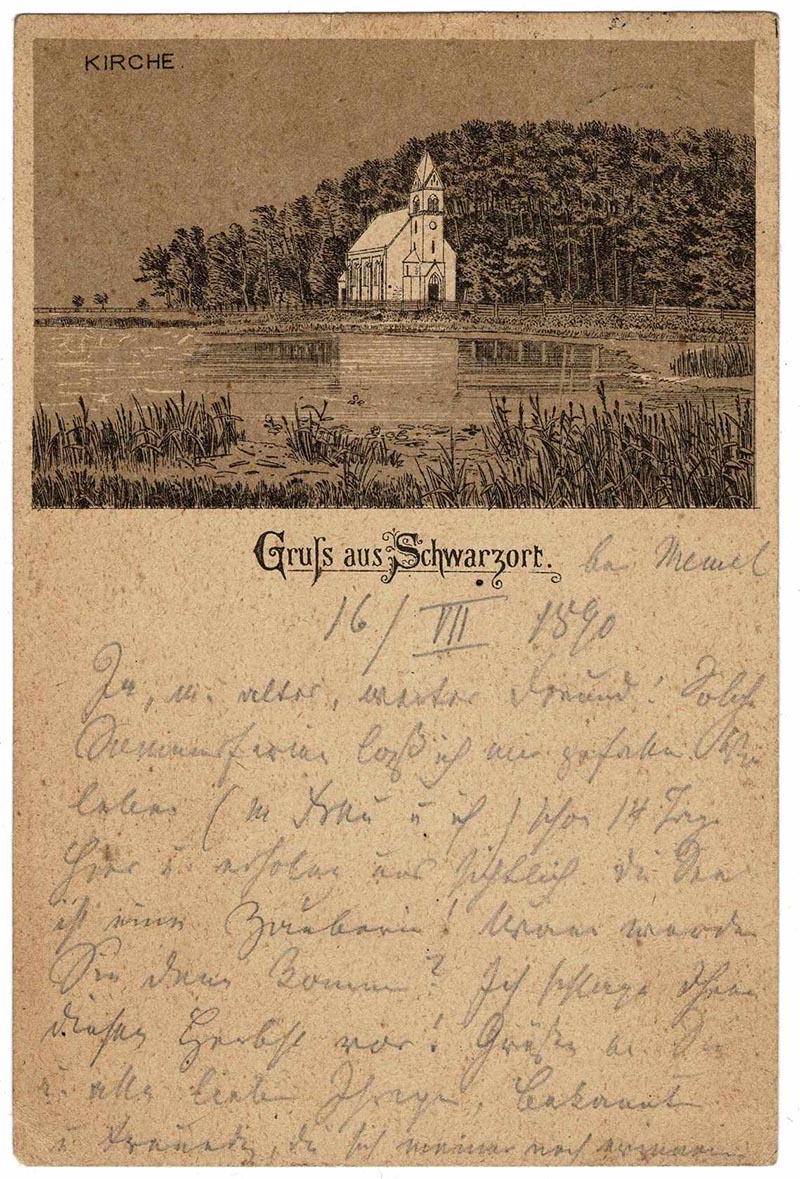 KIRCHE.
Gruſs aus Schwarzort. bei Memel
16/VII 1890
Ja, m. alter, werter Freund! Solche
Sommerferien laß ich mir gefallen. Wir
leben (m Frau u ich) schon 14 Tage
hier u. erholen uns sichtlich. Die See
ist eine Zauberin! Wann werden
Sie denn kommen? Ich schlage Ihnen
diesen Herbst vor! Grüße an Sie
u. alle lieben Ihrigen, Bekannte
u Freunde, die sich meiner noch erinnern